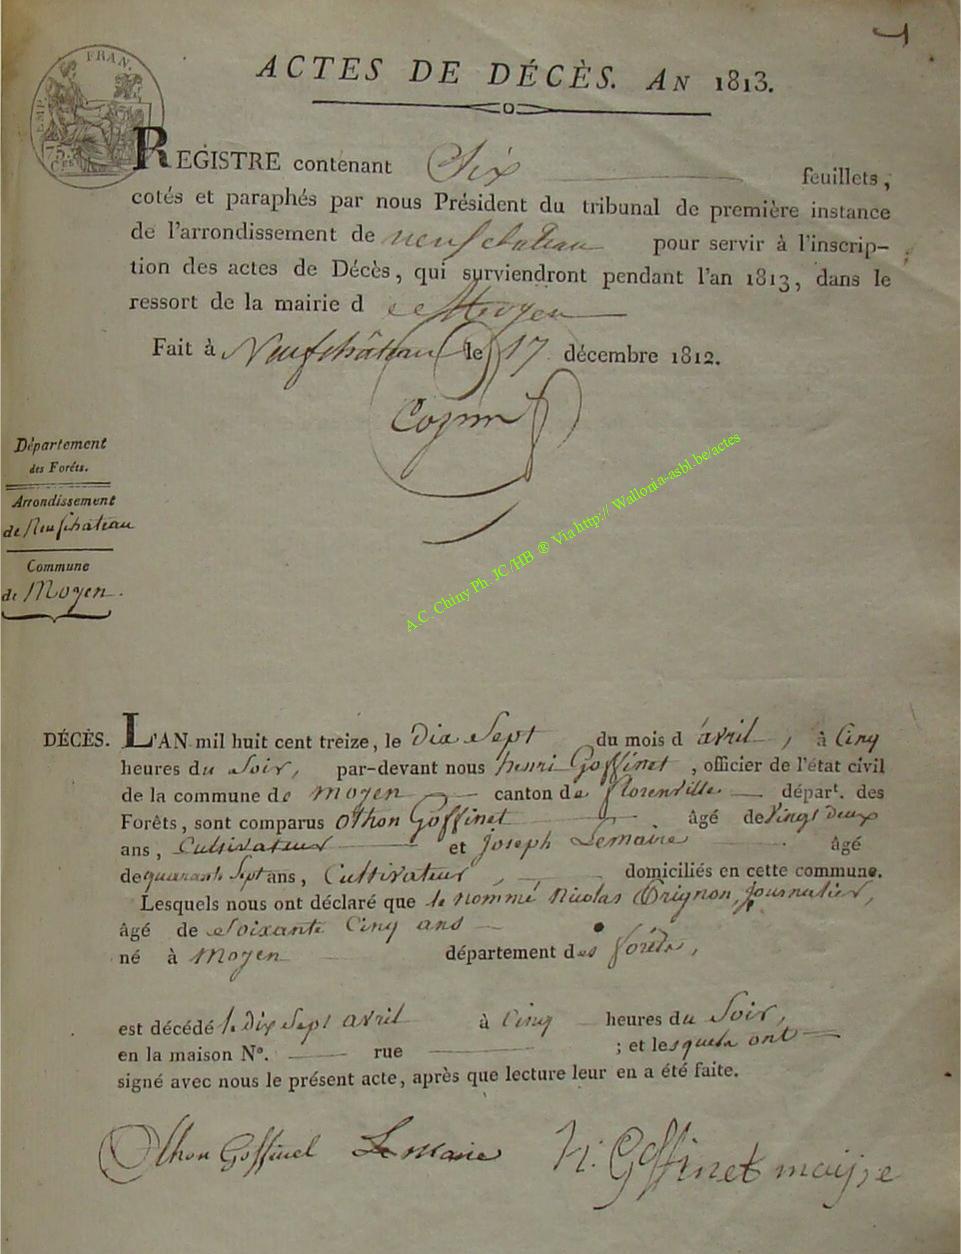 ACTES DE DÉCÈS. AN 1813.
EMP. FRAN.
75.
Ces
REGISTRE contenant Six feuillets,
cotés et paraphés par nous Président du tribunal de première instance
de l'arrondissement de neufchateau pour servir à l'inscrip-
tion des actes de Décès, qui surviendront pendant l'an 1813, dans le
ressort de la mairie d e Moyen
Fait à Neufchâteau le 17 décembre 1812.
Département
des Forêts.
Arrondissement
de Neufchateau
Commune
de Moyen.
A.C. Chiny Ph. JC/HB ® Via http:// Wallonia-asbl.be/actes
DÉCÈS. L'AN mil huit cent treize, le Dix Sept du mois d avril, à Cinq
heures du Soir, par-devant nous henri Goffinet, officier de l'état civil
de la commune de Moyen canton de florenville départ. des
Forêts, sont comparus Othon Goffinet âgé de Vingt deux
ans, Cultivateur et Joseph Lemaire âgé
de quarante Sept ans, Cultivateur, domiciliés en cette commune.
Lesquels nous ont déclaré que le nommé Nicolas Grignon, Journalier,
âgé de Soixante Cinq ans
né à Moyen département des forêts,
est décédé le Dix Sept avril à Cinq heures du Soir,
en la maison N°. rue ; et lesquels ont
signé avec nous le présent acte, après que lecture leur en a été faite.
Othon Goffinet Lemaire h. Goffinet maire